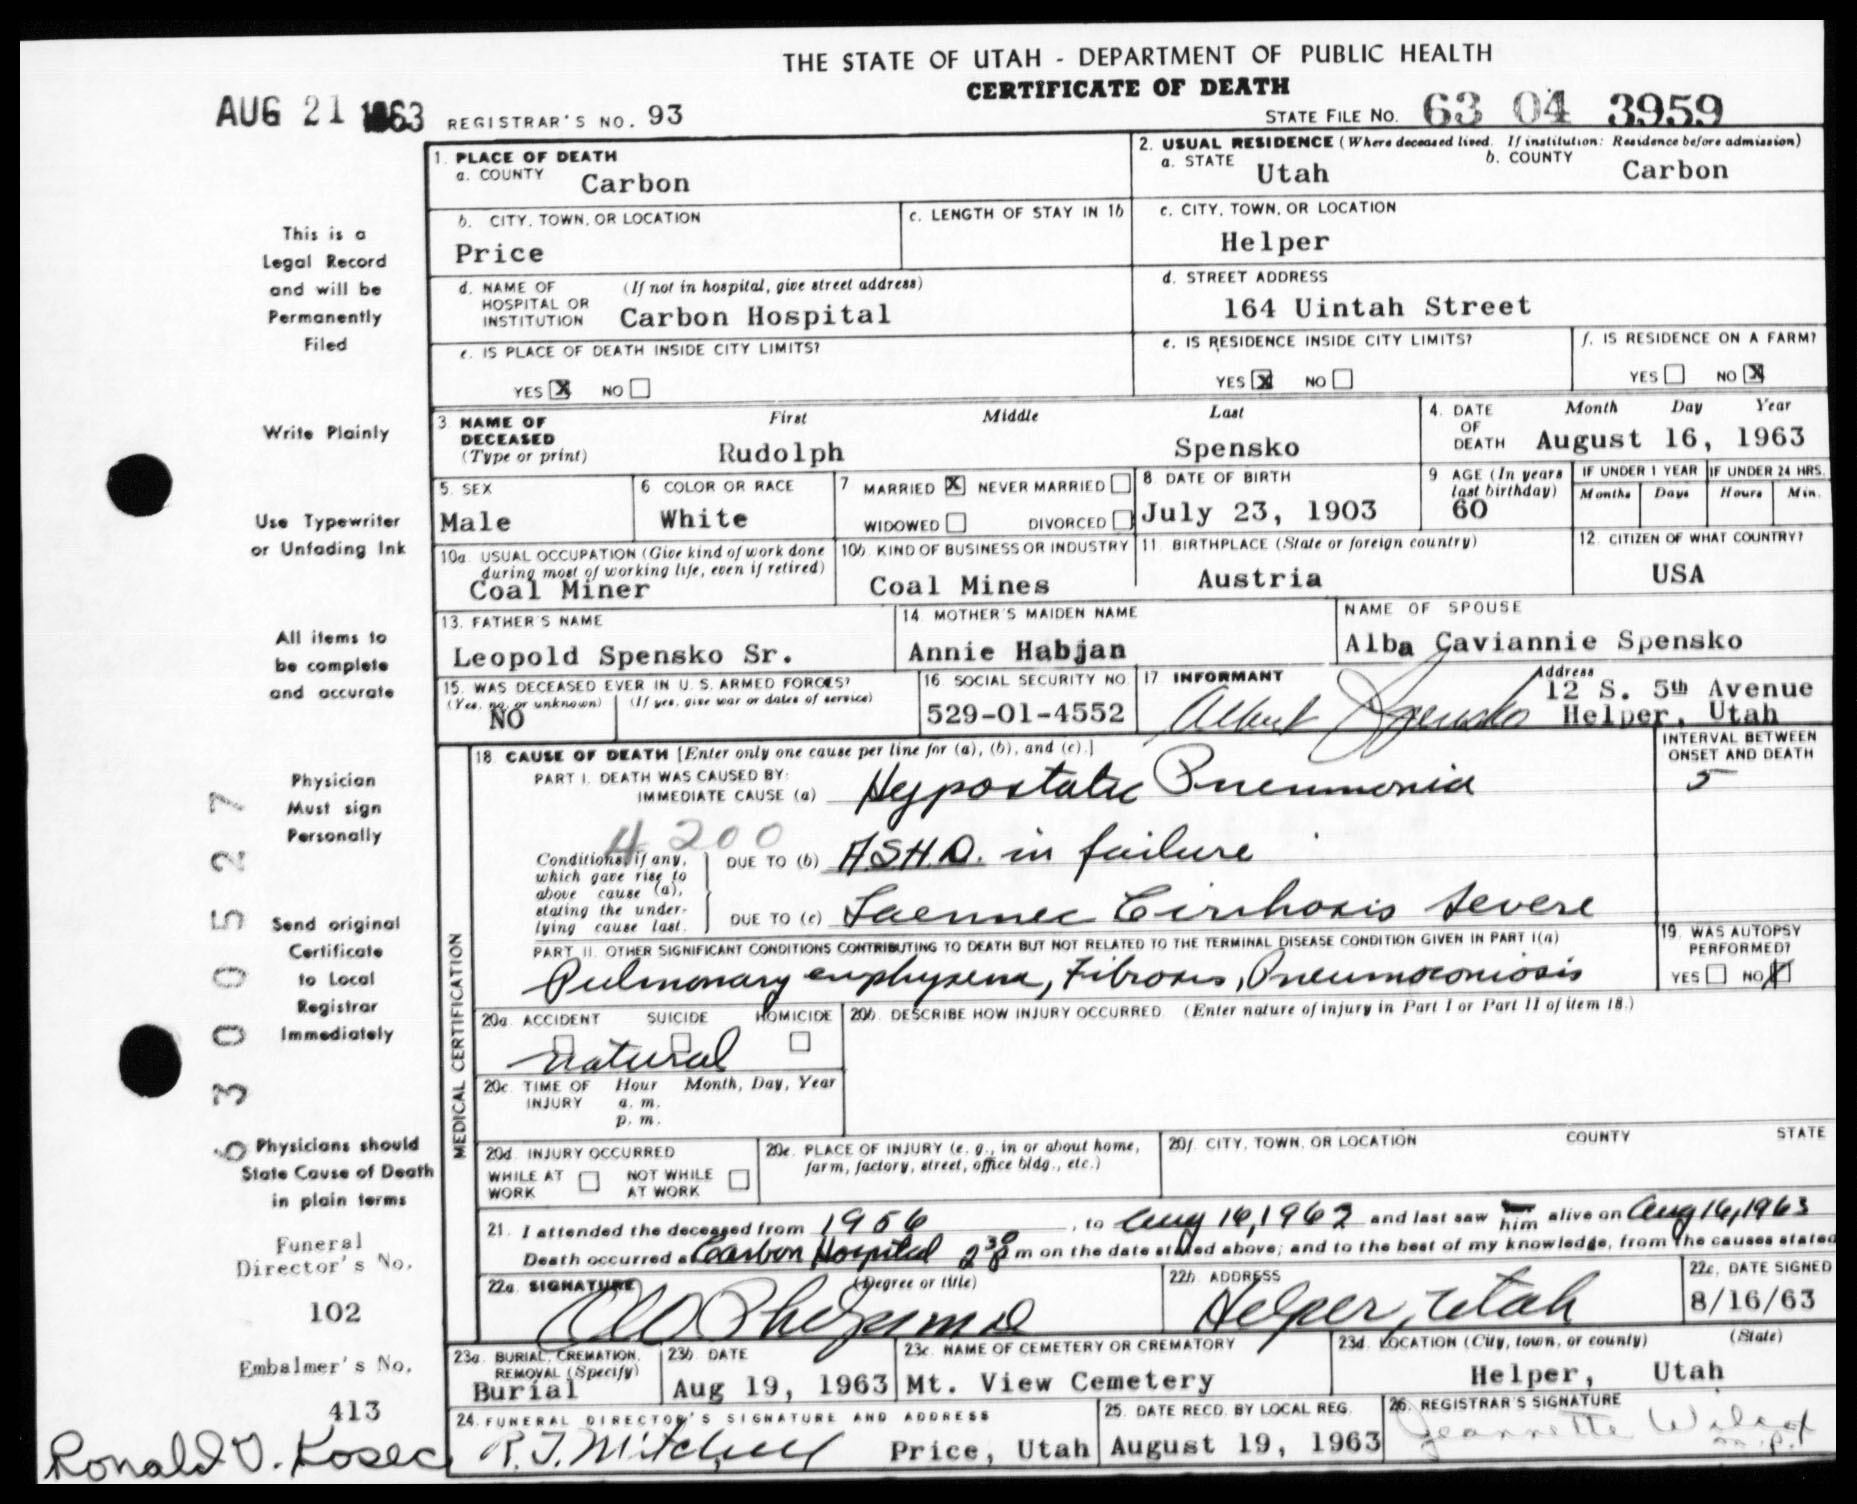 THE STATE OF UTAH - DEPARTMENT OF PUBLIC HEALTH
CERTIFICATE OF DEATH
AUG 21 1963 REGISTRAR'S NO. 93 STATE FILE NO. 63 04 3959
1. PLACE OF DEATH
a. COUNTY Carbon
2. USUAL RESIDENCE (Where deceased lived. If institution: Residence before admission)
a. STATE Utah b. COUNTY Carbon
b. CITY, TOWN, OR LOCATION Price
c. LENGTH OF STAY IN 1b
c. CITY, TOWN, OR LOCATION
Helper
d. NAME OF HOSPITAL OR INSTITUTION (If not in hospital, give street address)
Carbon Hospital
d. STREET ADDRESS
164 Uintah Street
e. IS PLACE OF DEATH INSIDE CITY LIMITS?
YES X NO
e. IS RESIDENCE INSIDE CITY LIMITS?
YES X NO
f. IS RESIDENCE ON A FARM?
YES NO X
3. NAME OF DECEASED (Type or print)
First Middle Last
Rudolph Spensko
4. DATE OF DEATH Month Day Year
August 16, 1963
5. SEX
Male
6 COLOR OR RACE
White
7 MARRIED X NEVER MARRIED
WIDOWED DIVORCED
8 DATE OF BIRTH
July 23, 1903
9 AGE (In years last birthday)
60
IF UNDER 1 YEAR IF UNDER 24 HRS.
Months Days Hours Min.
10a. USUAL OCCUPATION (Give kind of work done during most of working life, even if retired)
Coal Miner
10b. KIND OF BUSINESS OR INDUSTRY
Coal Mines
11. BIRTHPLACE (State or foreign country)
Austria
12. CITIZEN OF WHAT COUNTRY?
USA
13. FATHER'S NAME
Leopold Spensko Sr.
14. MOTHER'S MAIDEN NAME
Annie Habjan
NAME OF SPOUSE
Alba Caviannie Spensko
15. WAS DECEASED EVER IN U. S. ARMED FORCES?
(Yes, no, or unknown) (If yes, give war or dates of service)
NO
16 SOCIAL SECURITY NO.
529-01-4552
17 INFORMANT
Albert Spensko
Address
12 S. 5th Avenue
Helper, Utah
18 CAUSE OF DEATH [Enter only one cause per line for (a), (b), and (c).]
INTERVAL BETWEEN ONSET AND DEATH
PART I. DEATH WAS CAUSED BY:
IMMEDIATE CAUSE (a) Hypostatic Pneumonia 5
4200
Conditions, if any, which gave rise to above cause (a), stating the underlying cause last.
DUE TO (b) A.S.H.D. in failure
DUE TO (c) Laennec Cirrhosis severe
PART II. OTHER SIGNIFICANT CONDITIONS CONTRIBUTING TO DEATH BUT NOT RELATED TO THE TERMINAL DISEASE CONDITION GIVEN IN PART I(a)
Pulmonary emphysema, Fibrosis, Pneumoconiosis
19. WAS AUTOPSY PERFORMED?
YES NO X
MEDICAL CERTIFICATION
20a. ACCIDENT SUICIDE HOMICIDE
natural
20b. DESCRIBE HOW INJURY OCCURRED. (Enter nature of injury in Part I or Part II of item 18.)
20c. TIME OF INJURY Hour Month, Day, Year
a. m.
p. m.
20d. INJURY OCCURRED
WHILE AT WORK NOT WHILE AT WORK
20e. PLACE OF INJURY (e. g., in or about home, farm, factory, street, office bldg., etc.)
20f. CITY, TOWN, OR LOCATION COUNTY STATE
21. I attended the deceased from 1956, to Aug 16, 1963 and last saw him alive on Aug 16, 1963
Death occurred at Carbon Hospital 2 30 m on the date stated above; and to the best of my knowledge, from the causes stated
22a. SIGNATURE (Degree or title)
22b. ADDRESS
Helper, Utah
22c. DATE SIGNED
8/16/63
23a. BURIAL, CREMATION, REMOVAL (Specify)
Burial
23b. DATE
Aug 19, 1963
23c. NAME OF CEMETERY OR CREMATORY
Mt. View Cemetery
23d. LOCATION (City, town, or county) (State)
Helper, Utah
24. FUNERAL DIRECTOR'S SIGNATURE AND ADDRESS
R. J. Mitchell Price, Utah
25. DATE RECD. BY LOCAL REG.
August 19, 1963
26. REGISTRAR'S SIGNATURE
Jeannette
This is a
Legal Record
and will be
Permanently
Filed
Write Plainly
Use Typewriter
or Unfading Ink
All items to
be complete
and accurate
Physician
Must sign
Personally
Send original
Certificate
to Local
Registrar
Immediately
Physicians should
State Cause of Death
in plain terms
Funeral
Director's No.
102
Embalmer's No.
413
Ronald V. Kosec
6 3 0 0 5 2 7